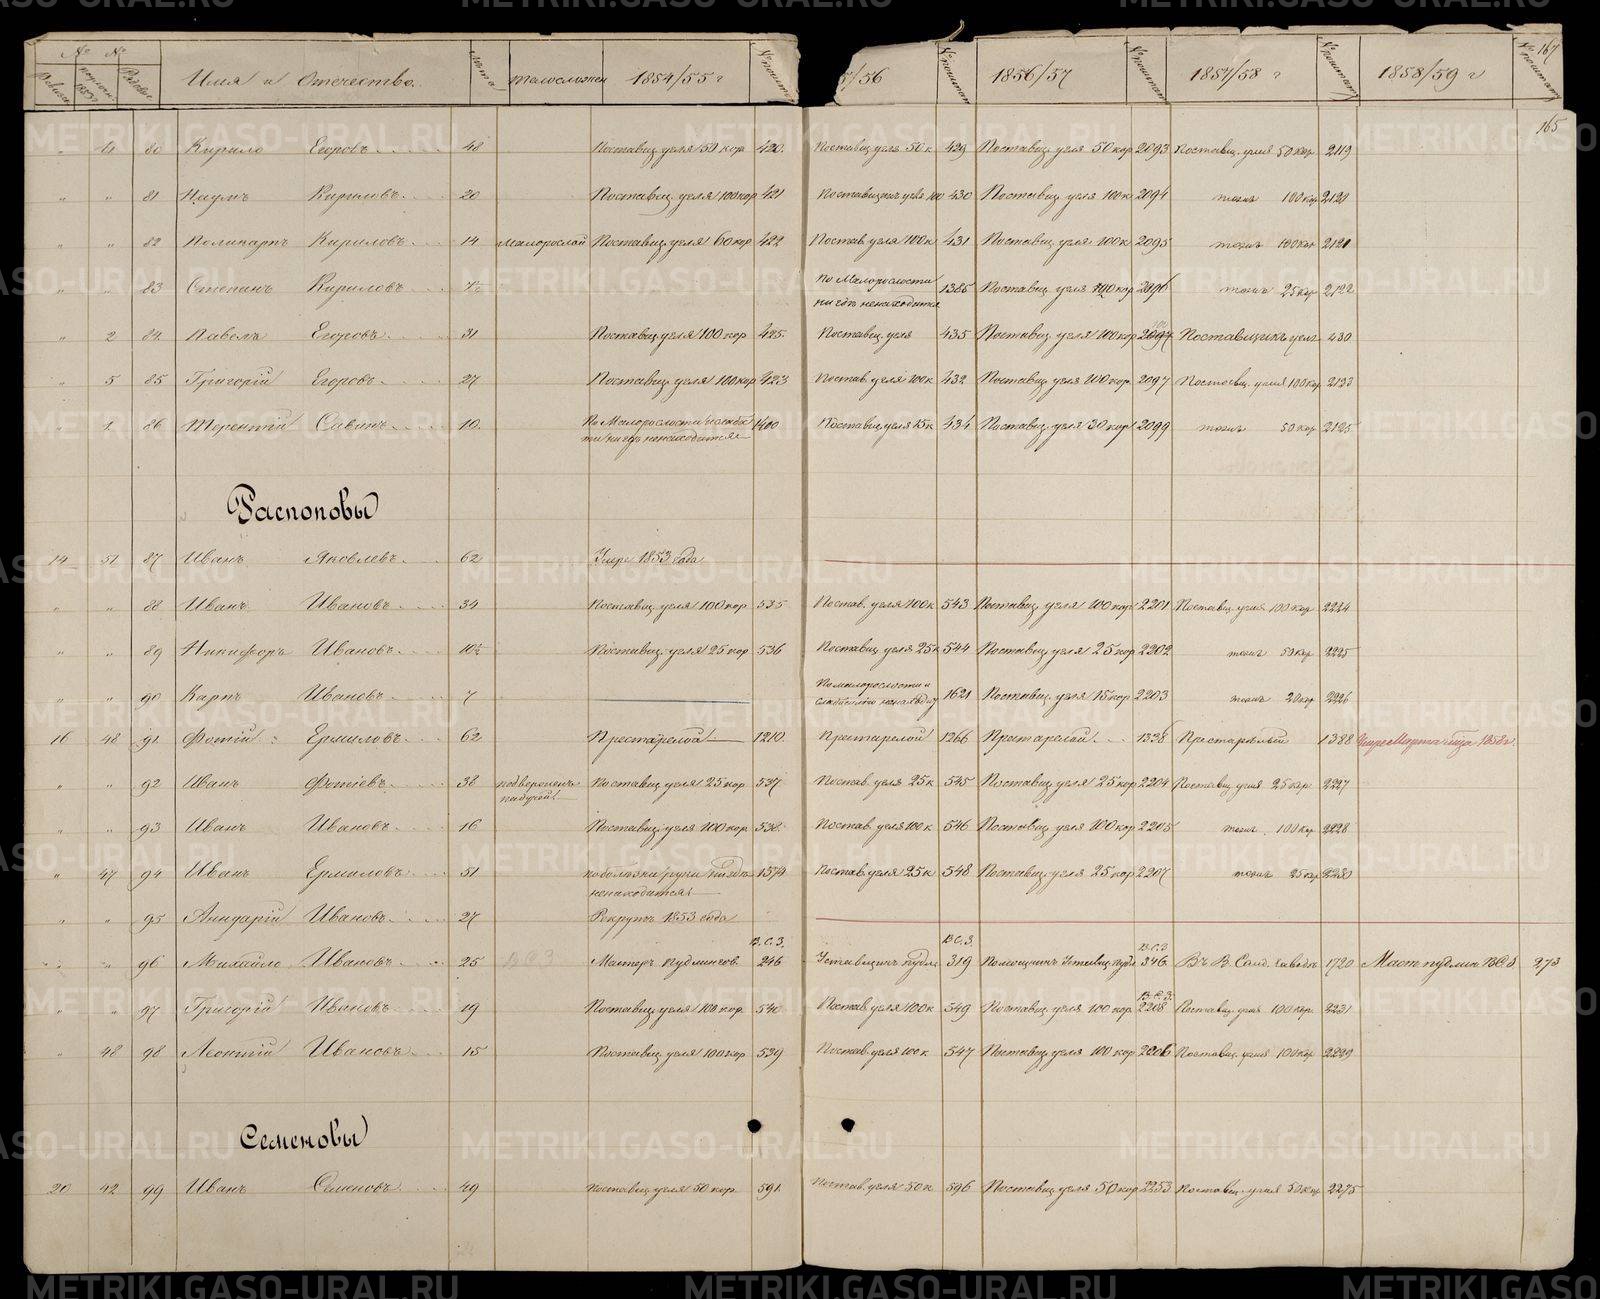 № № Имя и Отечество. лета телосложен 1854/55 г № по штату /56 № по штат 1856/57 № по штат 1857/58 г № по штату 1858/59 г № по штату 167
165
" 4 80 Кирило Егоровъ 48 Поставщ. угля 50 кор 420. Поставщ угля 50 к 429 Поставщ. угля 50 кор 2093 Поставщ. угля 50 кор 2119
" " 81 Наумъ Кириловъ 20 Поставщ. угля 100 кор 421 Поставщикъ угля 100 430 Поставщ. угля 100 к 2094 тоже 100 кор 2120
" " 82 Поликарпъ Кириловъ 14 малорослой Поставщ. угля 60 кор 422 Постав. угля 100 к 431 Поставщ. угля 100 к 2095 тоже 100 кор 2121
" " 83 Степанъ Кириловъ 7½ по Малорослости нигде ненаходится 1385 Поставщ. угля 100 кор 2096 тоже 25 кор 2122
" 2 84. Павелъ Егоровъ 31 Поставщ. угля 100 кор 425. Поставщ. угля 435 Поставщ. угля 100 кор Поставщикъ угля 430
" 5 85 Григорій Егоровъ 27 Поставщ. угля 100 кор 423 Постав. угля 100 к. 432 Поставщ. угля 100 кор. 2097 Поставщ. угля 100 кор 2123
" 1. 86 Терентій Савинъ 10. по Малорослости нигде ненаходится 1400 Поставщ. угля 15 к 434 Поставщ. угля 30 кор 2099 тоже 50 кор 2125
Распоповы
14 51 87 Иванъ Яковлевъ 62 Умре 1853 года
" " 88 Иванъ Ивановъ 34 Поставщ. угля 100 кор 535 Постав. угля 100 к 543 Поставщ. угля 100 кор 2201 Поставщ. угля 100 кор 2224
" " 89 Никифоръ Ивановъ 10½ Поставщ. угля 25 кор 536 Поставщ. угля 25 к 544 Поставщ. угля 25 кор 2202 тоже 50 кор 2225
" " 90 Карпъ Ивановъ 7 По малорослости и 1621 Поставщ. угля 15 кор 2203 тоже 20 кор 2226
16 48 91 Фотій Ермиловъ 62 Престарелой 1210. Престарелой 1266 Престарелой 1328 Престарѣлый 1388 Умре Марта 1858 г.
" " 92 Иванъ Фотіевъ 38 Поставщ. угля 25 кор 537 Постав. угля 25 к 545 Поставщ. угля 25 кор 2204 Поставщ. угля 25 кор 2227
" " 93 Иванъ Ивановъ 16 Поставщ. угля 100 кор 538. Постав. угля 100 к 546 Поставщ. угля 100 кор 2205 тоже 100 кор 2228
" 47 94 Иванъ Ермиловъ 51 по болезни руки нигде ненаходится 1574 Постав. угля 25 к 548 Поставщ. угля 25 кор 2207 тоже 25 кор 2230
" " 95 Ивановъ 27 Рекрутъ 1853 года
" " 96 Михайло Ивановъ 25 Мастеръ пудлингов. В.С.З. 246 Уставщикъ пудли В.С.З. 319 Помощникъ Уставщ. пудл В.С.З 346. Въ В. Салд. заводѣ 1720 Маст. пудлин. В.С.З 273
" " 97 Григорій Ивановъ 19 Поставщ. угля 100 кор. 540 Постав. угля 100 к 549 Поставщ. угля 100 кор. В.С.З. 2208 Поставщ. угля 100 кор. 2231
" 48 98 Леонтій Ивановъ 15 Поставщ. угля 100 кор 539 Постав. угля 100 к 547 Поставщ. угля 100 кор 2206 Поставщ. угля 100 кор 2229
Семеновы
20 42 99 Иванъ Семеновъ 49 Поставщ. угля 50 кор. 591 Постав. угля 50 к 596 Поставщ. угля 50 кор 2253 Поставщ. угля 50 кор 2275
METRIKI.GASO-URAL.RU